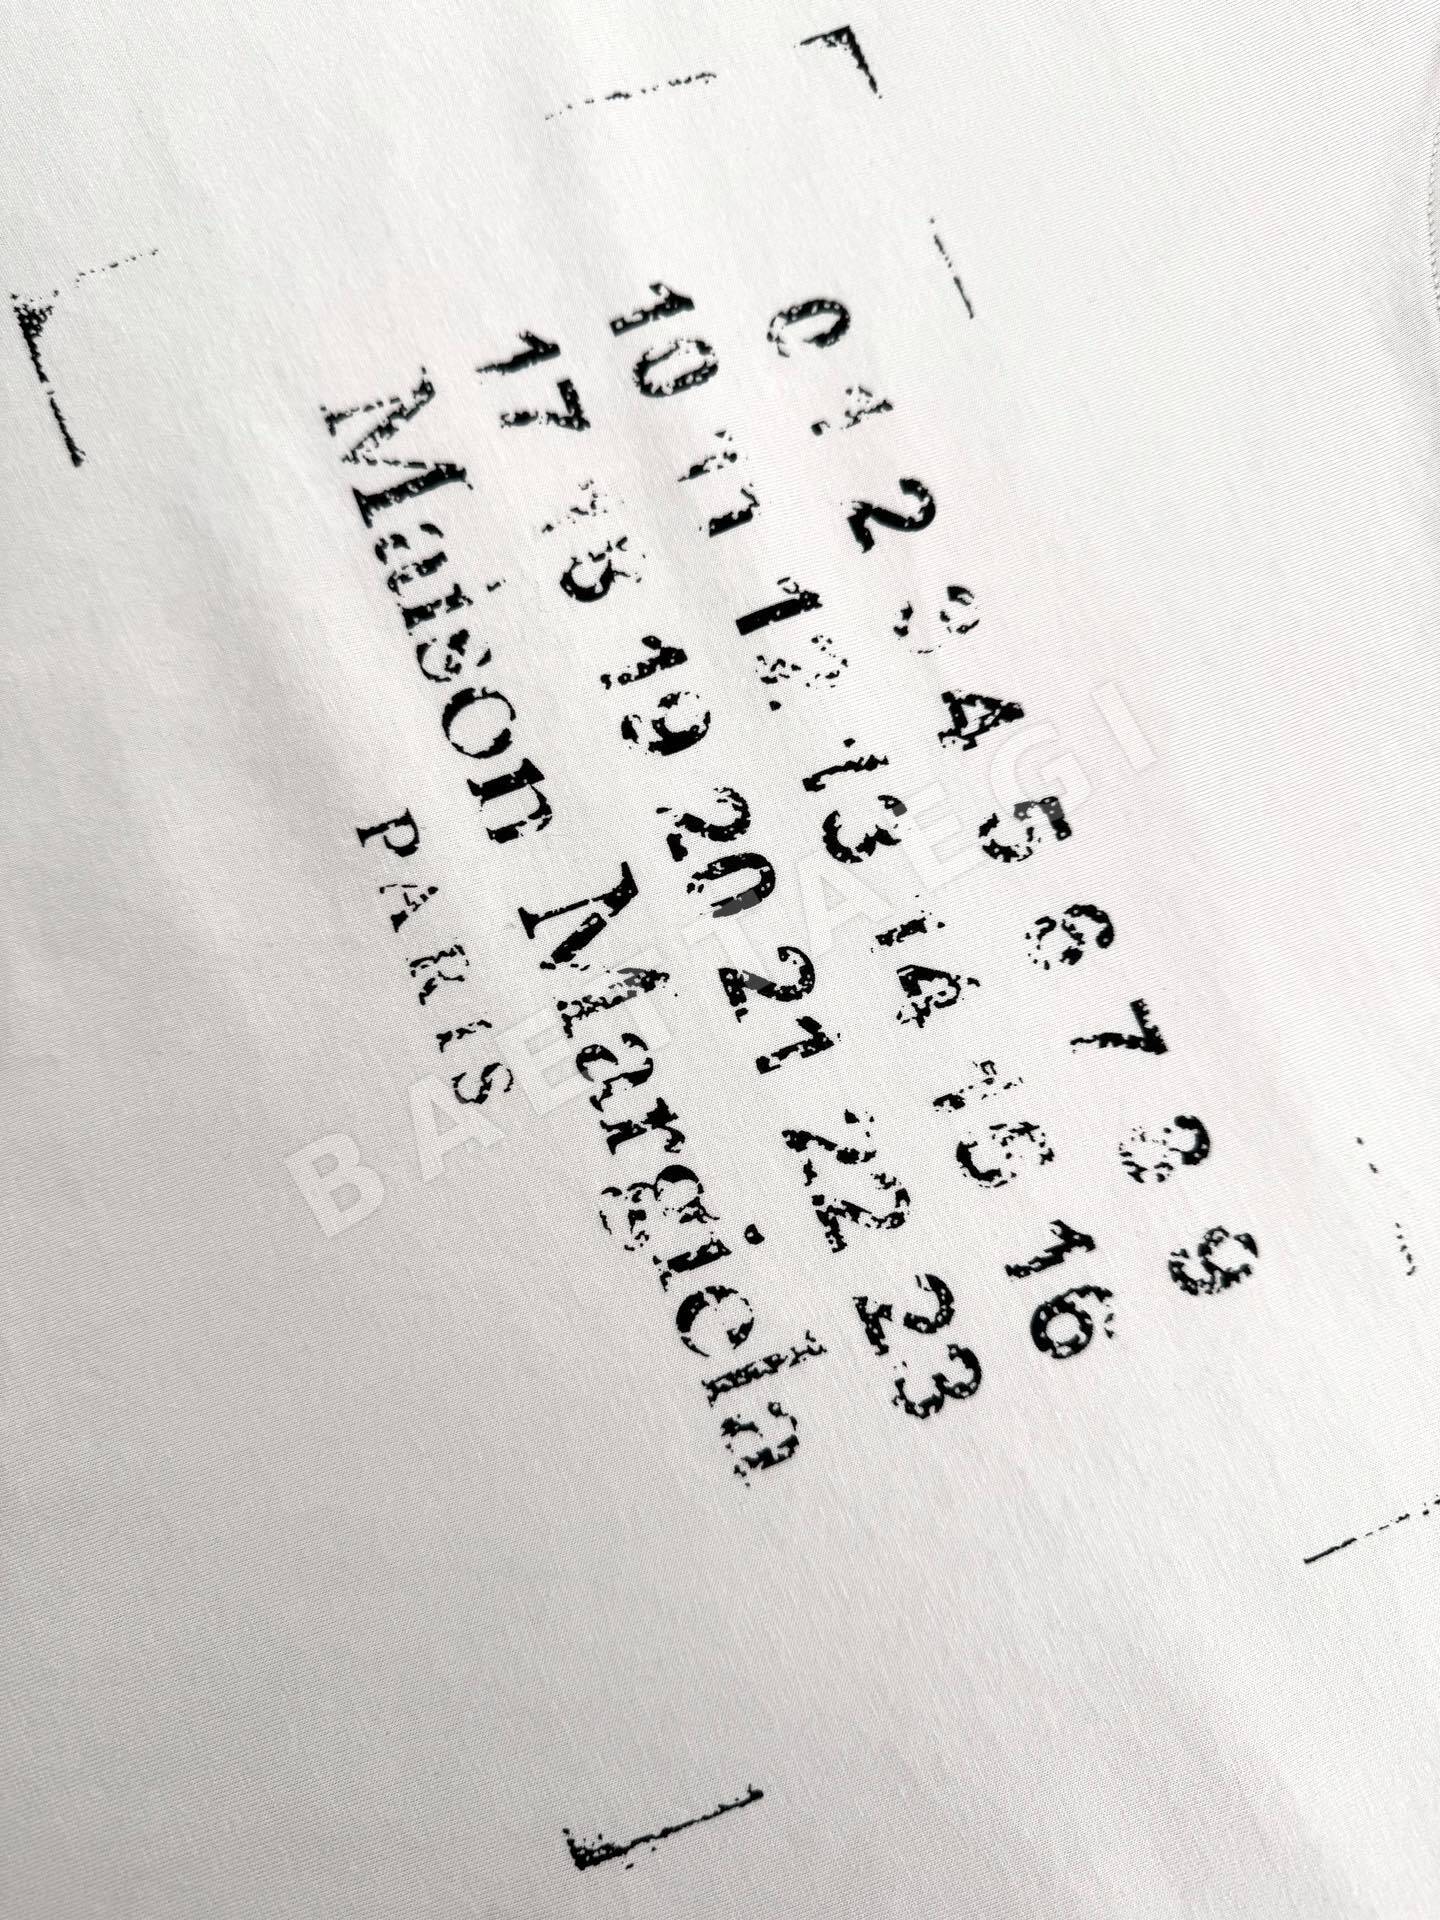 0 1 2 3 4 5 6 7 8 9
10 11 12 13 14 15 16
17 18 19 20 21 22 23
Maison Margiela
PARIS
BAEFTAEGI